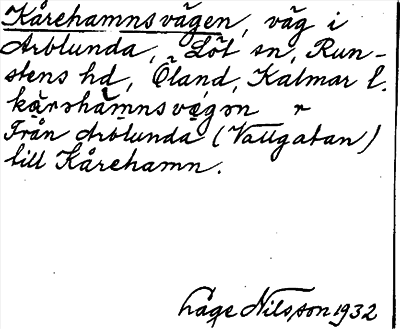 Kårehamnsvägen, väg i
Arblunda, Löt sn, Run-
stens hd, Öland, Kalmar l.
kårəhàmnsvägən r
Från Arblunda (Vallgatan)
till Kårehamn.
Låge Nilsson 1932